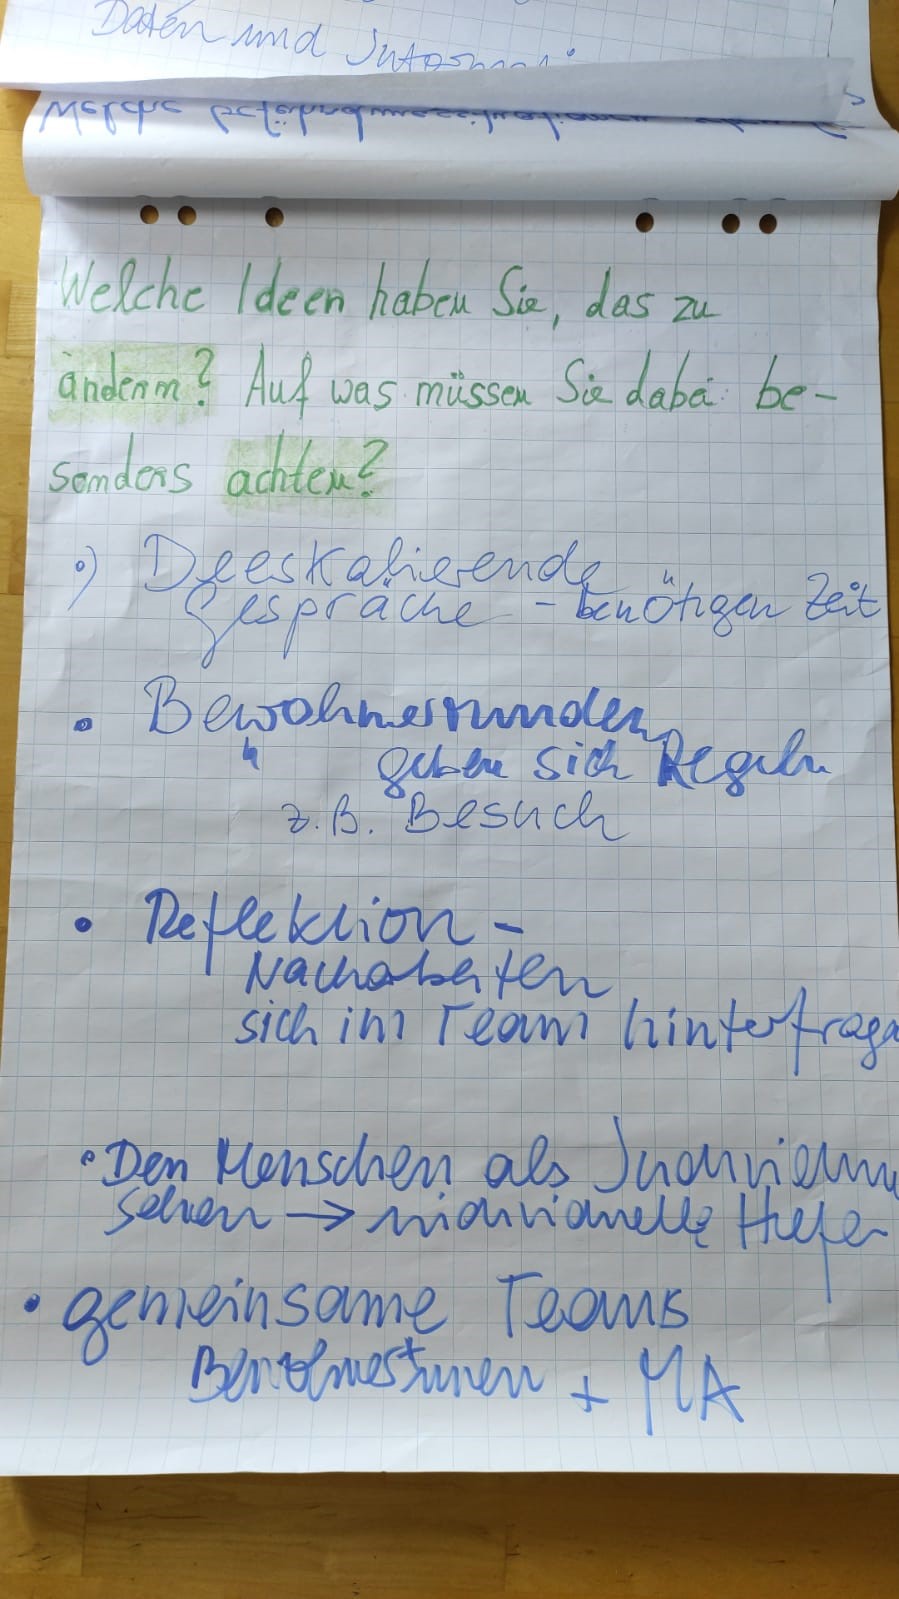 Daten und
Welche
Welche Ideen haben Sie, das zu
ändern? Auf was müssen Sie dabei be-
sonders achten?
Deeskalierende
Gespräche - benötigen Zeit
• Bewohnerrunden
geben sich Regeln
z.B. Besuch
• Reflektion -
Nacharbeiten
sich im Team hinterfragen
• Den Menschen als Individuum
sehen → individuelle Hilfen
• gemeinsame Teams
Bewohner*innen + MA